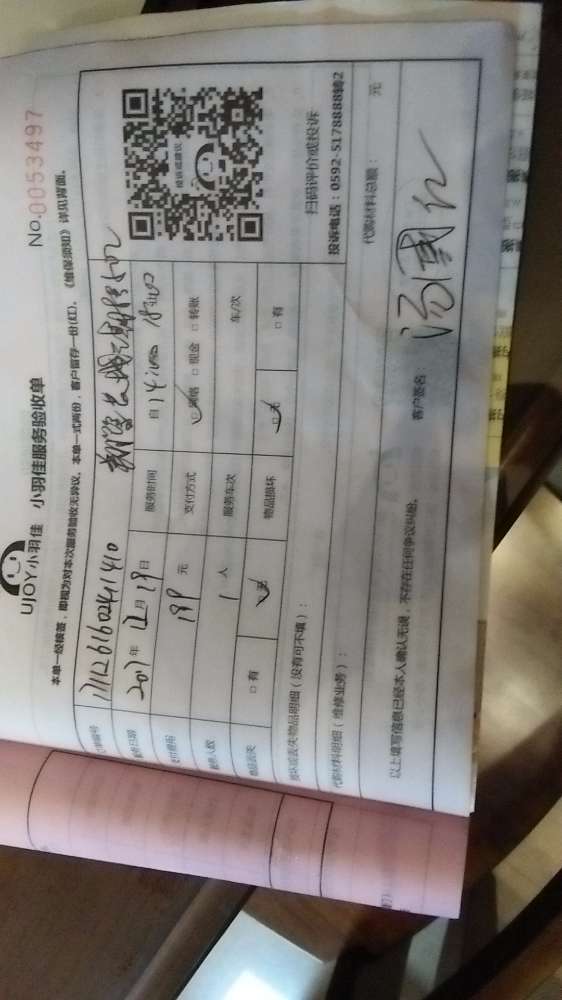 UJOY小羽佳 小羽佳服务验收单
No.0053497
本单一经核签，即视为对本次服务验收无异议。本单一式两份，客户留存一份(红)，《维保须知》详见背面。
订单编号 1112616024141410
服务日期 2017年12月19日 服务时间 日14:00 18:00
支付费用 199元 支付方式 ☑网络 □现金 □转账
服务人数 1人 服务车次 车/次
物品丢失 □有 ☑无 物品损坏 ☑无 □有
投诉或建议
扫码评价或投诉
投诉电话：0592-5178888转2
损坏或丢失物品明细（没有可不填）：
代购材料明细（维修业务）： 代购材料总额： 元
以上填写信息已经本人确认无误，不存在任何争议纠纷。
客户签名： 汤国红